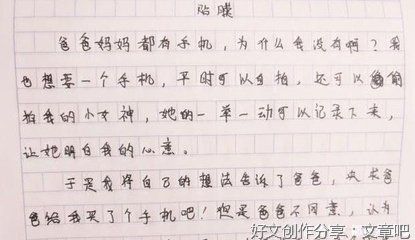 贴膜
爸爸妈妈都有手机，为什么我没有啊？我
也想要一个手机，平时可以自拍，还可以偷
拍我的小女神，她的一举一动可以记录下来，
让她明白我的心意。
于是我将自己的想法告诉了爸爸，央求爸
爸给我买了个手机吧！但是爸爸不同意，认为
好文创作分享：文章吧